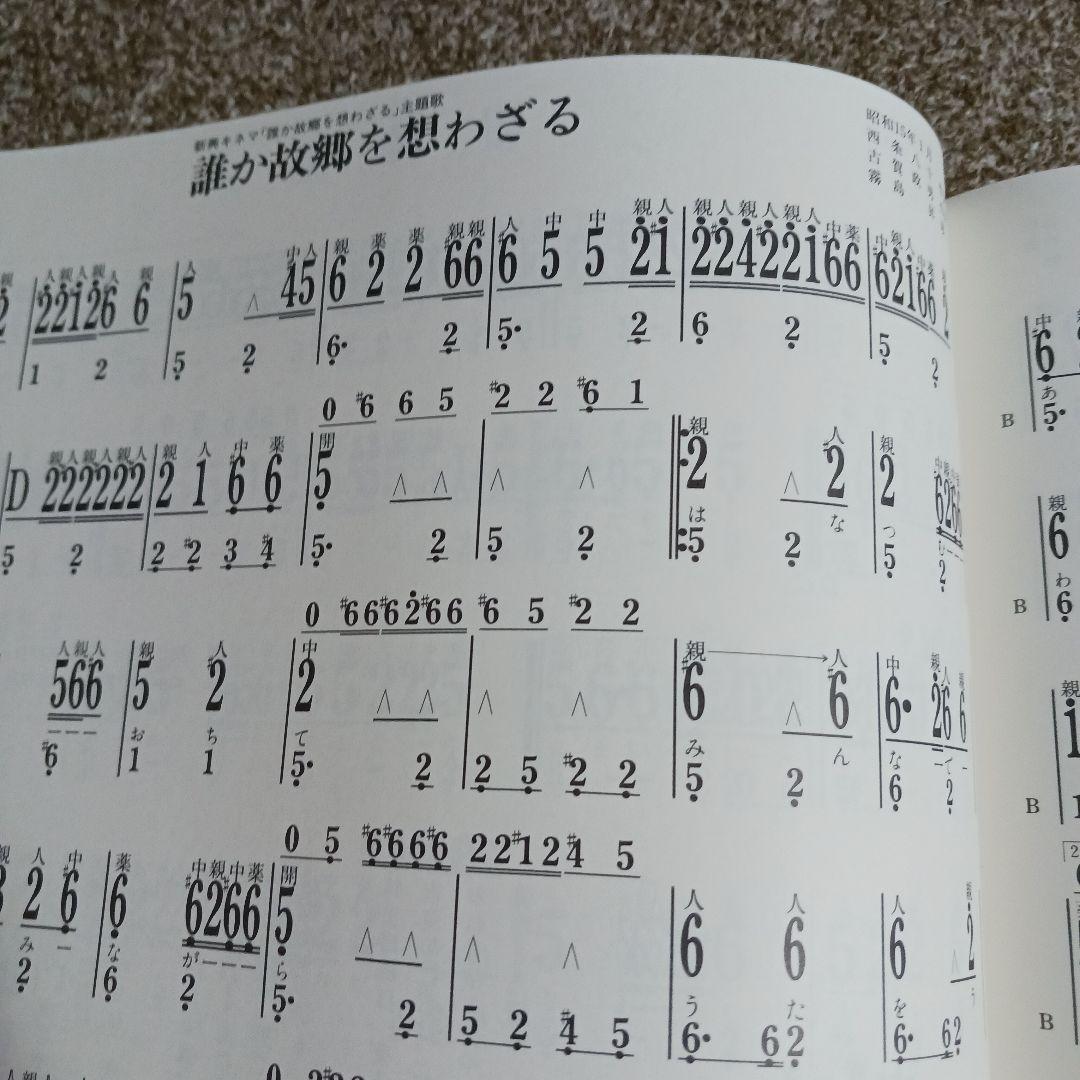 新興キネマ「誰か故郷を想わざる」主題歌
誰か故郷を想わざる
昭和15年1月
西条八
古賀政男
霧島
人親人親人 親 人 中人 親 薬 薬 親親 人 中 中 親人 親人親人親人中薬 中親人中薬
2 2 1 2 6 6 5 ∧ #4 5 6 2 2 6 6 #6 5 5 2 #1 2 #2 4 #2 2 1 #6 6 #6 2 1 #6 6
1 2 5 2 6・ 2 5・ 2 6 2 5 2
0 #6 6 5 #2 2 #6 1
親人親人親人 親 人 中 薬 開 親 人 親
D 2 2 2 2 2 2 2 1 #6 6 5 ∧ ∧ ∧ ∧ 2 ∧ #2 2
は な つ
5 2 2 #2 3 #4 5・ 2 5 2 5 2 5 2
0 #6 6 #6 2 #6 6 #6 5 #2 2
人親人 親 人 中 親 人 中 親人親
5 6 #6 5 #2 2 ∧ ∧ ∧ ∧ #6 ∧ #6 6・ 2 #6 6
ーーー お ち て み ん な ー て ー
#6 1 1 5・ 2 2 5 #2 2 5 2 6 2
0 5 #6 #6 6 #6 2 2 #1 2 #4 5
親 人 中 薬 中親中薬 開 人 人 人 親
2 #6 #6 #6 2 #6 6 5 ∧ ∧ ∧ ∧ 6 6 6 ∧ 2
み ー な がーーー ら う た を う
2 6 2 5・ 2 5 2 #4 5 6・ 6 2 6・ 6 2
中
#6
あ
B 5・
親
6
わ
B 6
親
B
B